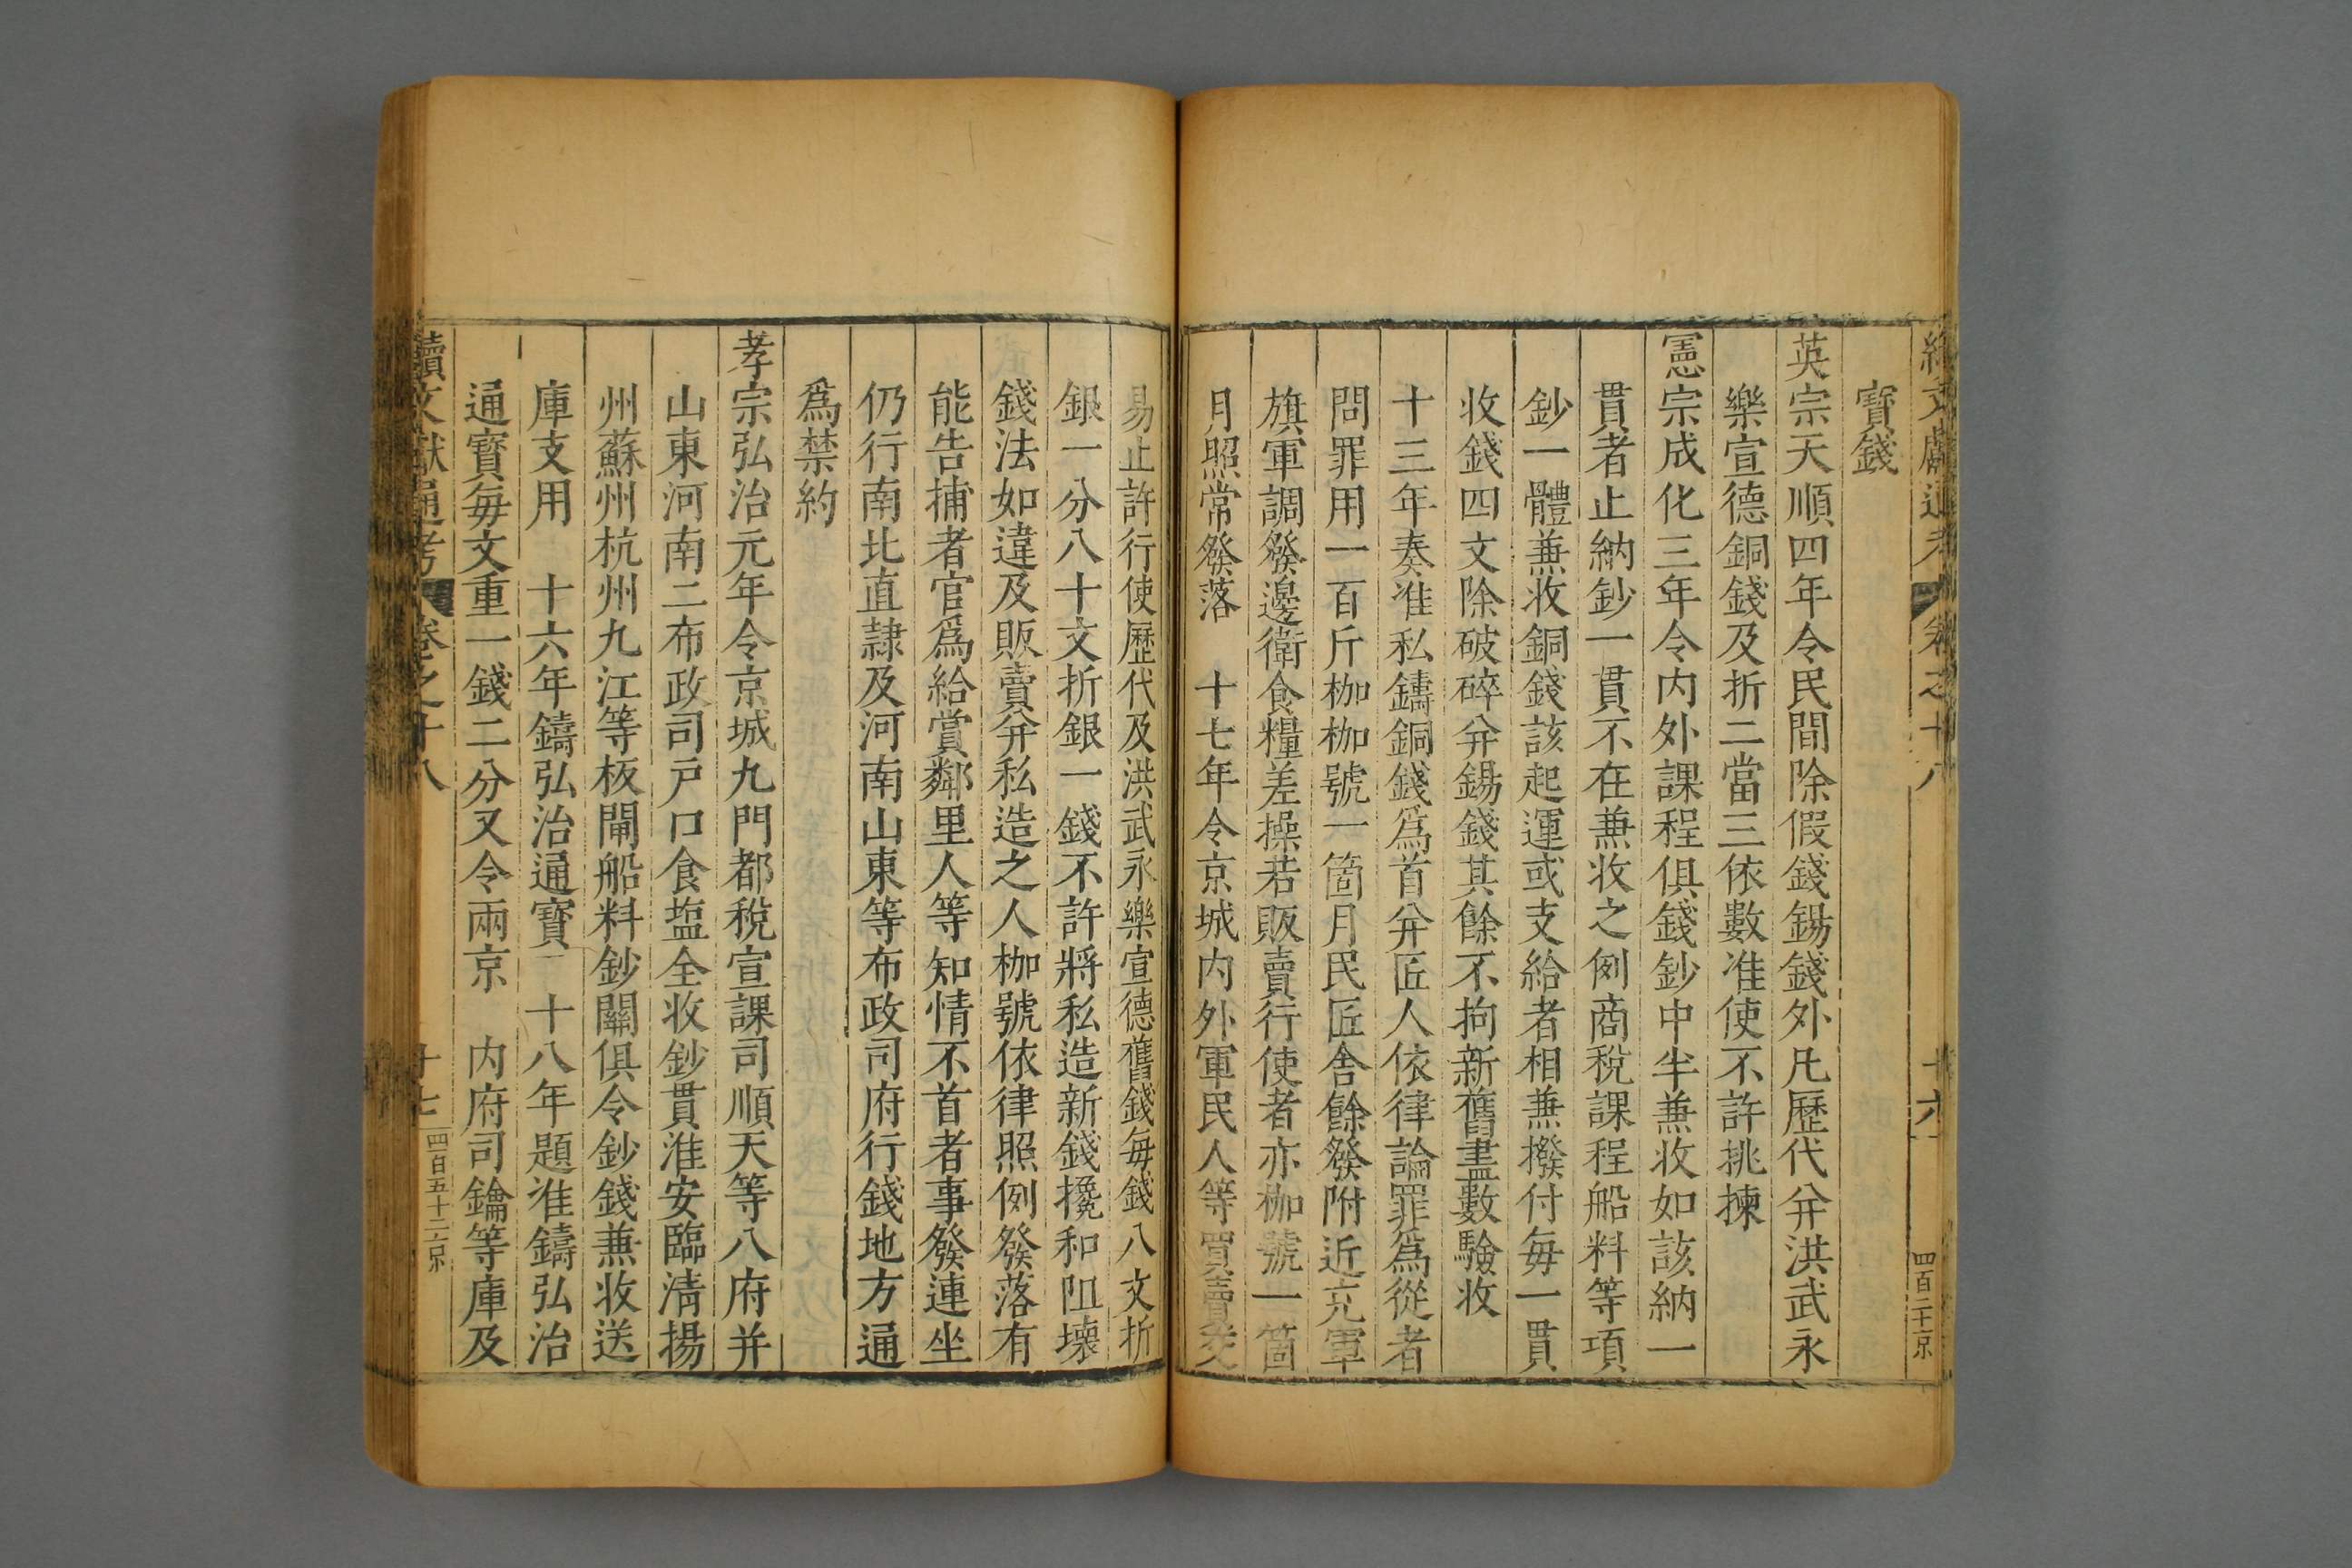 續文獻通考 卷之十八 十六 四百二十京
寶錢
英宗天順四年令民間除假錢錫錢外凡歷代并洪武永
樂宣德銅錢及折二當三依數准使不許挑揀
憲宗成化三年令内外課程俱錢鈔中半兼收如該納一
貫者止納鈔一貫不在兼收之例商稅課程船料等項
鈔一體兼收銅錢該起運或支給者相兼撥付每一貫
收錢四文除破碎并錫錢其餘不拘新舊盡數驗收
十三年奏准私鑄銅錢爲首并匠人依律論罪爲從者
問罪用一百斤枷枷號一箇月民匠舍餘發附近充軍
旗軍調發邊衛食糧差操若販賣行使者亦枷號一箇
月照常發落 十七年令京城内外軍民人等買賣交
易止許行使歷代及洪武永樂宣德舊錢每錢八文折
銀一分八十文折銀一錢不許將私造新錢攙和阻壞
錢法如違及販賣并私造之人枷號依律照例發落有
能告捕者官爲給賞鄰里人等知情不首者事發連坐
仍行南北直隷及河南山東等布政司府行錢地方通
爲禁約
孝宗弘治元年令京城九門都稅宣課司順天等八府并
山東河南二布政司戸口食塩全收鈔貫淮安臨淸揚
州蘇州杭州九江等板閘船料鈔關俱令鈔錢兼收送
庫支用 十六年鑄弘治通寶 十八年題准鑄弘治
通寶每文重一錢二分又令兩京 内府司鑰等庫及
續文獻通考 卷之十八 十七 四百五十二京